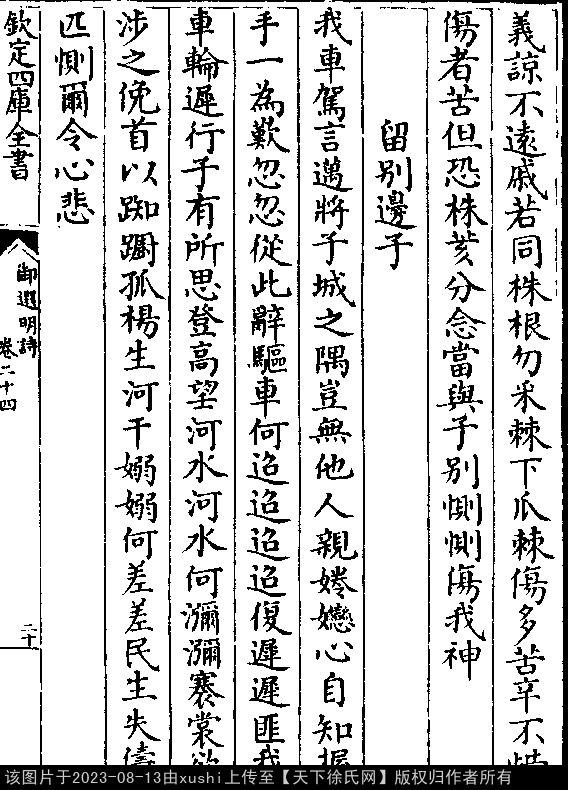 義諒不遠戚若同株根勿采棘下瓜棘傷多苦辛不惜
傷者苦但恐株荄分念當與子别惻惻傷我神
留别邊子
我車駕言邁將子城之隅豈無他人親婘戀心自知握
手一為歎忽忽從此辭驅車何迢迢迢迢復遲遲匪我
車輪遲行子有所思登高望河水河水何瀰瀰褰裳欲
涉之俛首以踟躕孤楊生河干嫋嫋何差差民生失儔
匹惻爾令心悲
欽定四庫全書
御選明詩
卷二十四
二十
该图片于2023-08-13由xushi上传至【天下徐氏网】版权归作者所有